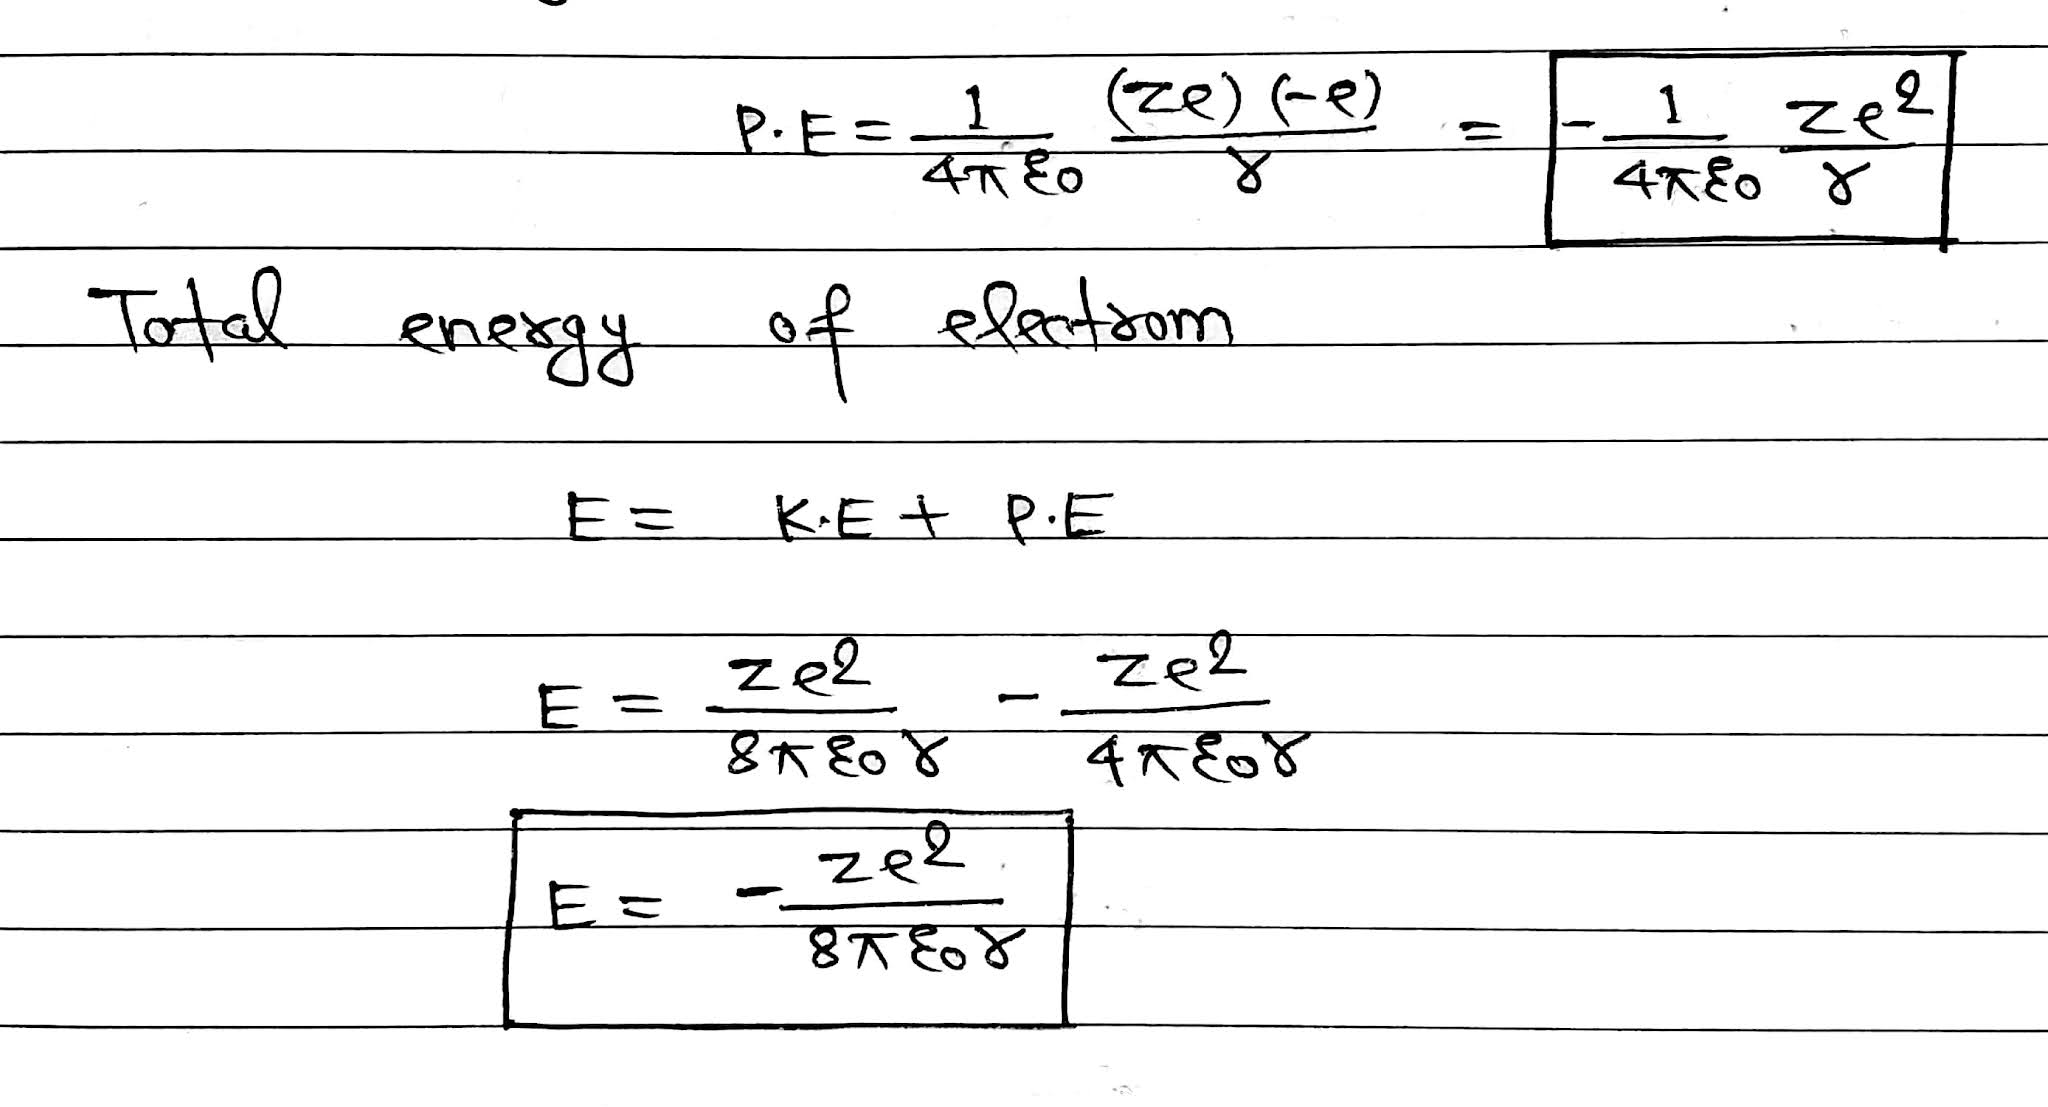 P.E = \frac{1}{4\pi\varepsilon_0} \frac{(ze)(-e)}{r} = -\frac{1}{4\pi\varepsilon_0} \frac{ze^2}{r}
Total energy of electrom
E = K.E + P.E
E = \frac{ze^2}{8\pi\varepsilon_0 r} - \frac{ze^2}{4\pi\varepsilon_0 r}
E = -\frac{ze^2}{8\pi\varepsilon_0 r}